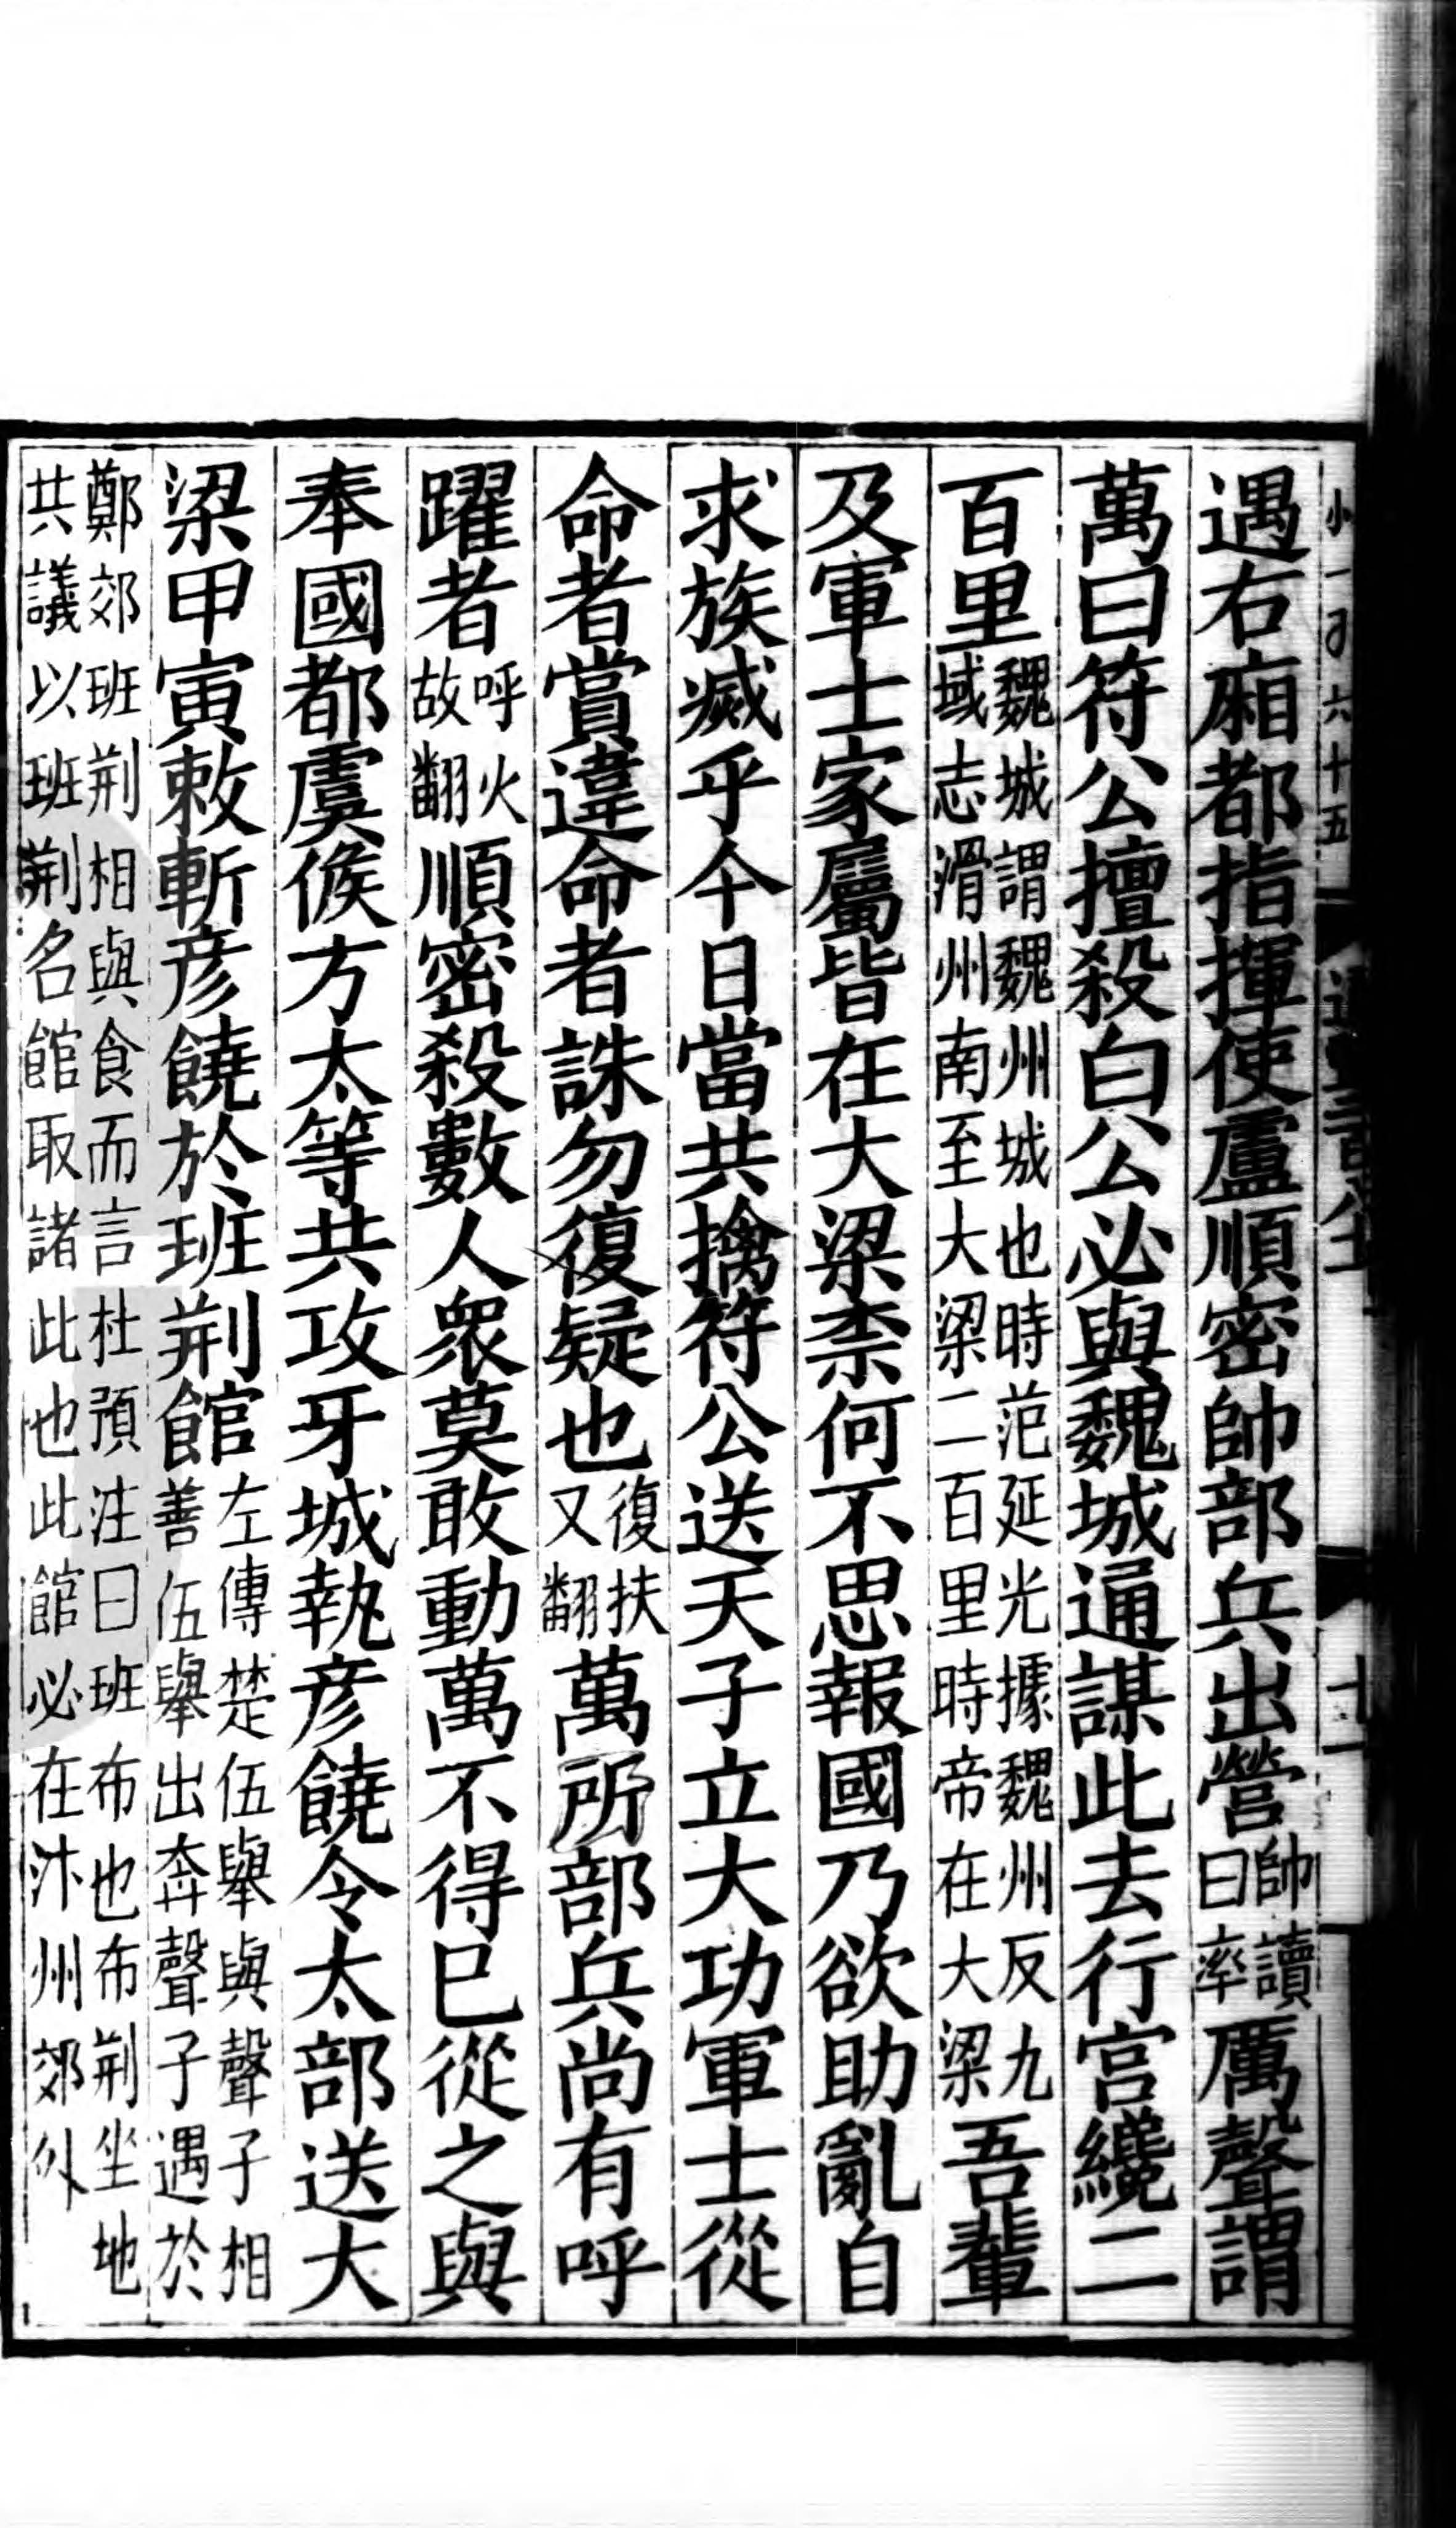 遇右廂都指揮使盧順密帥部兵出營帥讀曰率厲聲謂
萬曰符公擅殺白公必與魏城通謀此去行宫纔二
百里魏城謂魏州城也時范延光據魏州反九域志滑州南至大梁二百里時帝在大梁吾輩
及軍士家屬皆在大梁柰何不思報國乃欲助亂自
求族滅乎今日當共擒符公送天子立大功軍士從
命者賞違命者誅勿復疑也復扶又翻萬所部兵尚有呼
躍者呼火故翻順密殺數人衆莫敢動萬不得已從之與
奉國都虞候方太等共攻牙城執彦饒令太部送大
梁甲寅敕斬彦饒於班荆館左傳楚伍舉與聲子相善伍舉出奔聲子遇於
鄭郊班荆相與食而言杜預注曰班布也布荆坐地共議以班荆名館取諸此也此館必在汴州郊外